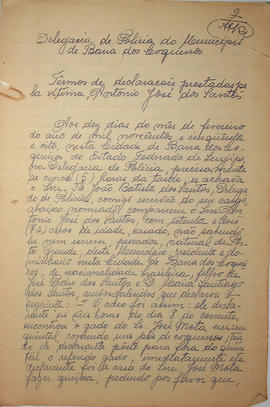 2
Delegacia de Policia do Municipio
de Barra dos Coqueiros
Termos de declarações prestadas pe
la vitima, Antonio José dos Santos
Aos dez dias do mês de fevereiro
do ano de mil novecentos e cinquenta
e oito, nesta Cidade de Barra dos Co
queiros do Estado Federado de Sergipe,
na Delegacia de Policia, precisamente
as cinco (5) horas da tarde, se achava
o Snr. João Batista dos Santos, Delega
do de Policia, comigo escrivão do seu cargo,
abaixo nomeado, compareceu o Snr. An
tonio José dos Santos, com setenta e dois
(72) anos de idade, casado, não sabendo
ler nem escrever, pescador, natural de Por
to Grande, neste Municipio, residente e do
miciliado nesta Cidade de Barra dos Coquei
ros, de nacionalidade brasileira, filho de
José Pedro dos Santos e D. Maria Santiago
dos Santos, que declarou o
seguinte: — O caso foi assim: ele decla
rante as seis horas do dia 8 do corrente,
encontrou o gado do Snr. José Mota, em seu
quintal comendo uns pés de coqueiros; ten
do ele declarante posto para fora do quin
tal o referido gado; imediatamente ele
declarante foi a casa do Snr. José Mota
fazer queixa, pedindo por favor que